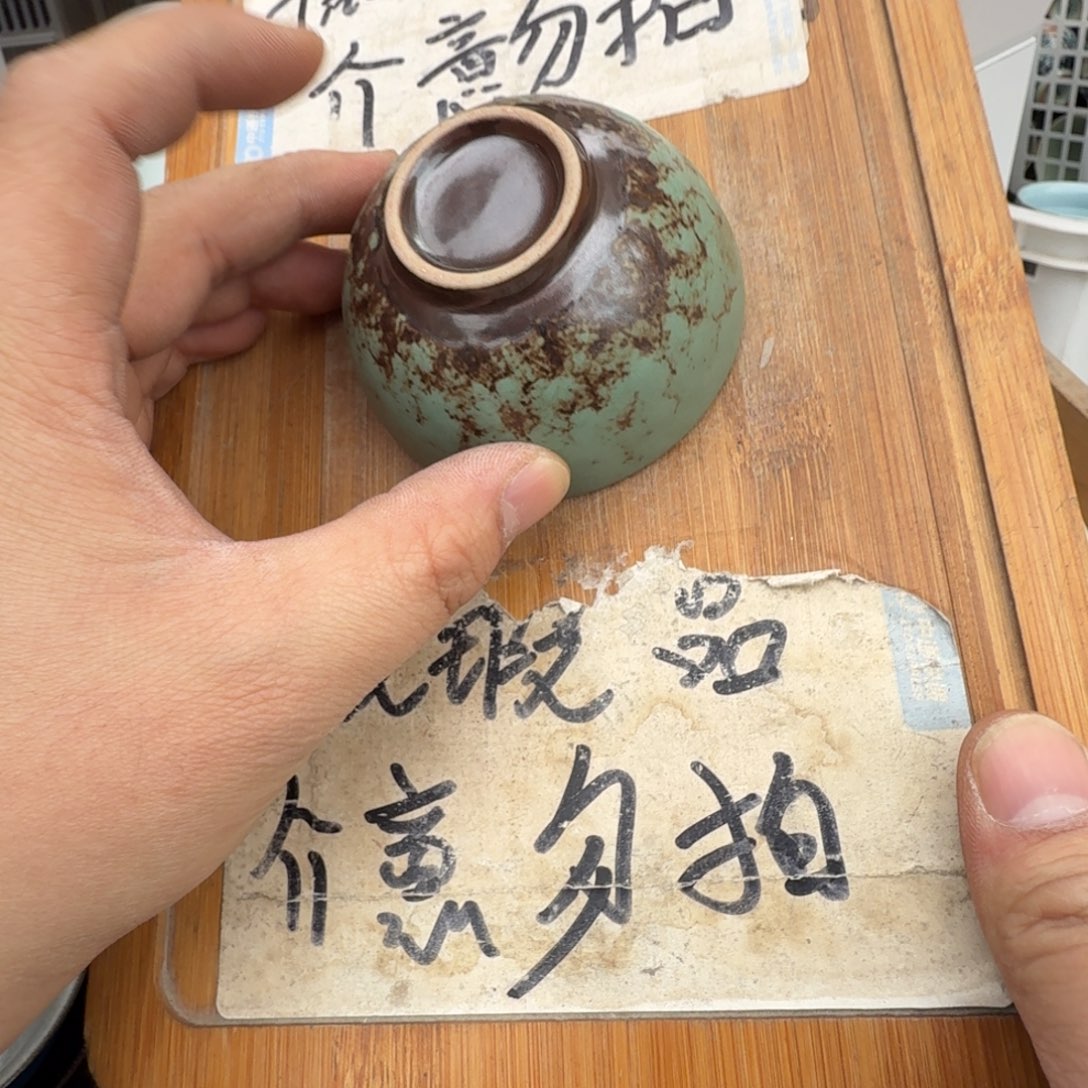 介意勿拍
瑕品
介意勿拍